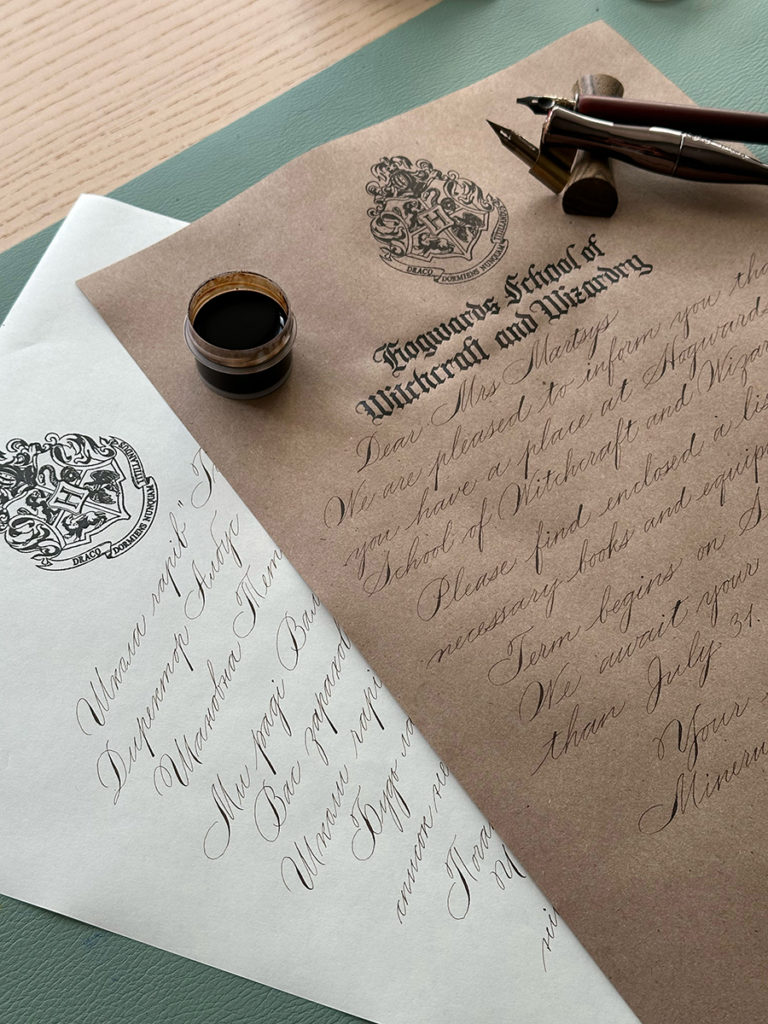 DRACO DORMIENS NUNQUAM TITILLANDUS
Hogwards School of
Witchcraft and Wizardry
Dear Mrs Martsys
We are pleased to inform you
you have a place at Hogwards
School of Witchcraft and
Please find enclosed a
necessary books and
Term begins on
We await your
than July 31.
Your
DRACO DORMIENS NUNQUAM TITILLANDUS
Школа магів"
Директор Албус
Шановна
Ми раді
Вас
Школи магі
Будь
список